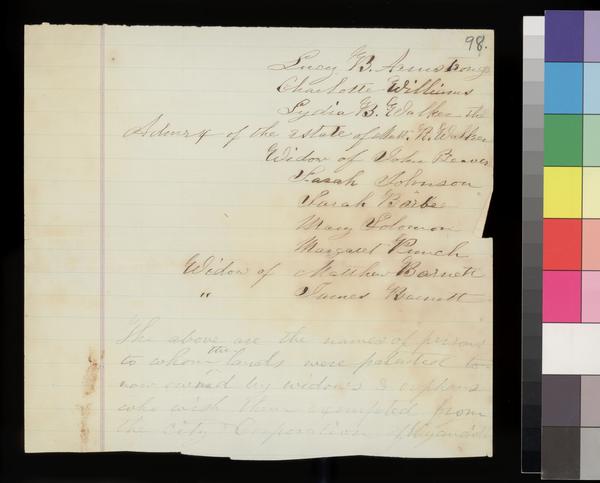 98.
Lucy B. Armstrong
Charlotte Williams
Lydia B. Walker the
Admrx of the estate of Matt. R. Walker
Widow of John Beaver
Sarah Johnson
Sarah Barbe
Mary Solomon
Margaret Punch
Widow of Matthew Barnett
" James Barnett
The above are the names of persons
to whom the lands were patented to
now owned by widows & orphans
who wish them exempted from
the city Corporation of Wyandott